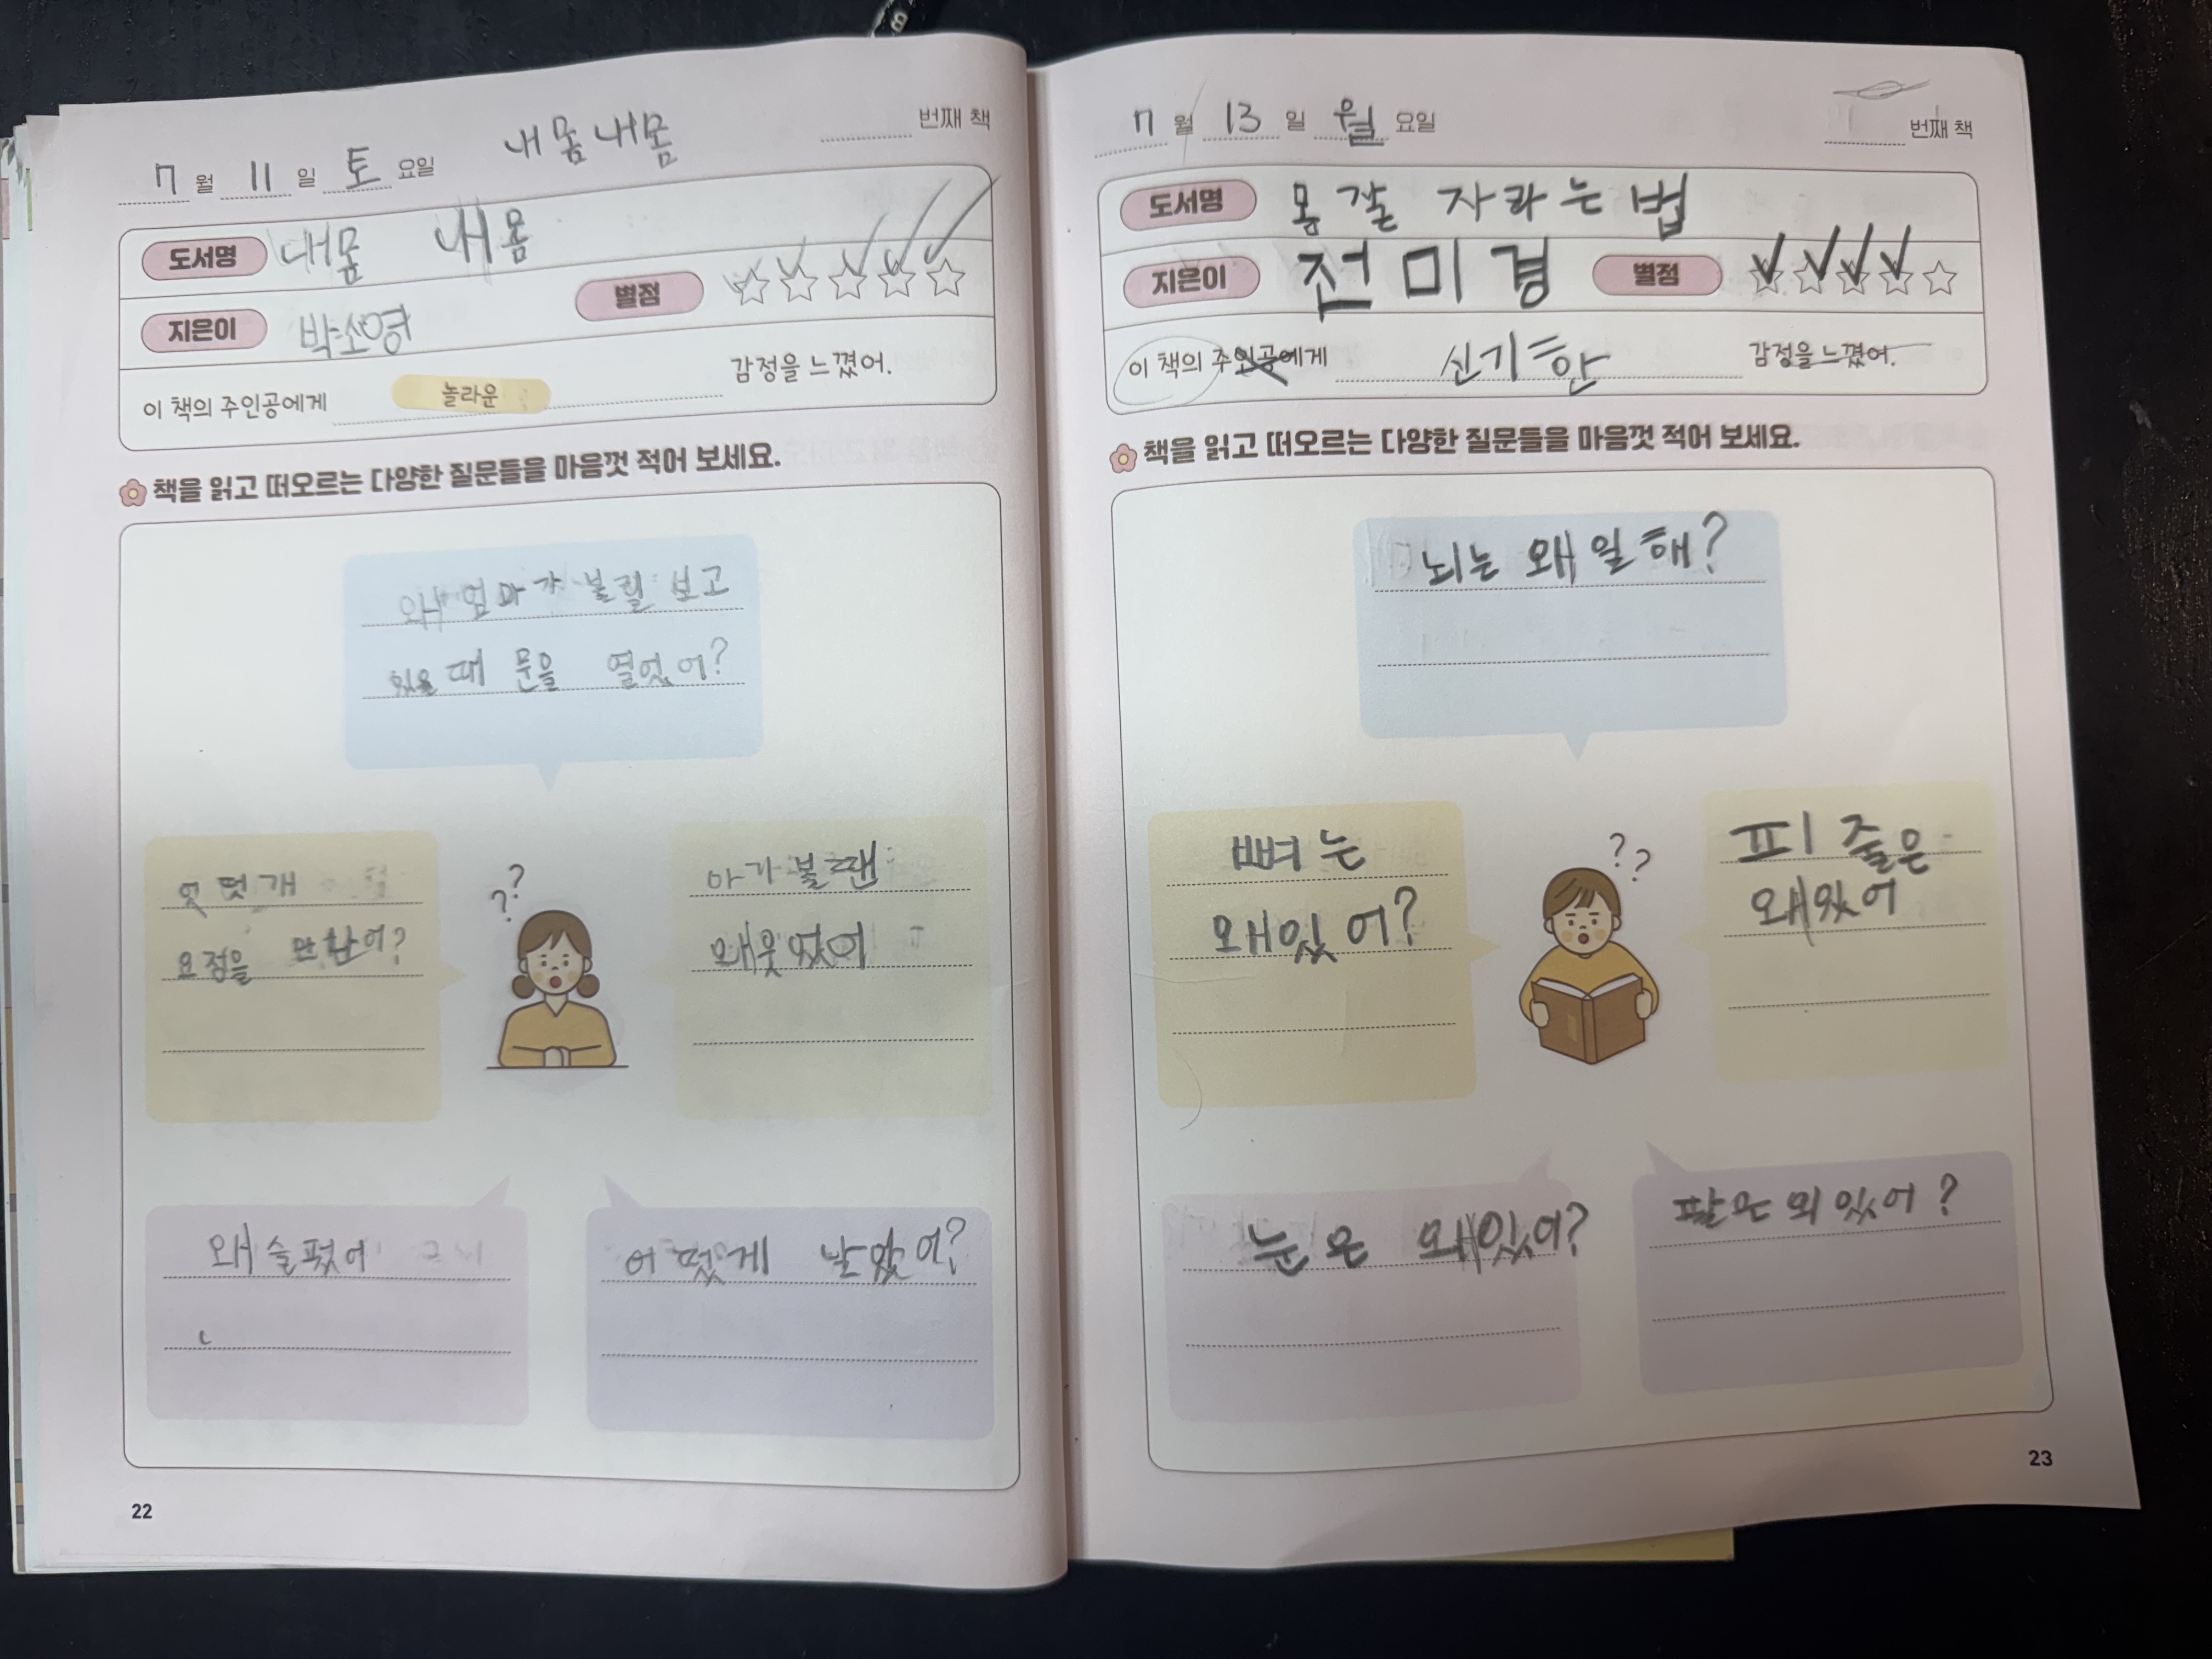 내몸내몸
번째 책
7월 11일 토요일
도서명 내몸 내몸
지은이 박소영 별점
이 책의 주인공에게 놀라운 감정을 느꼈어.
책을 읽고 떠오르는 다양한 질문들을 마음껏 적어 보세요.
왜 엄마가 볼일 보고
있을 때 문을 열었어?
요정을 만났어?
아가 볼 땐
왜 웃었어
왜 슬펐어
어떻게 날았어?
22
7월 13일 월요일
번째 책
도서명 몸 잘 자라는 법
지은이 전미경 별점
이 책의 주인공에게 신기한 감정을 느꼈어.
책을 읽고 떠오르는 다양한 질문들을 마음껏 적어 보세요.
뇌는 왜 일해?
뼈는
왜있어?
피줄은
왜있어
눈은 왜있어?
팔은 외있어?
23